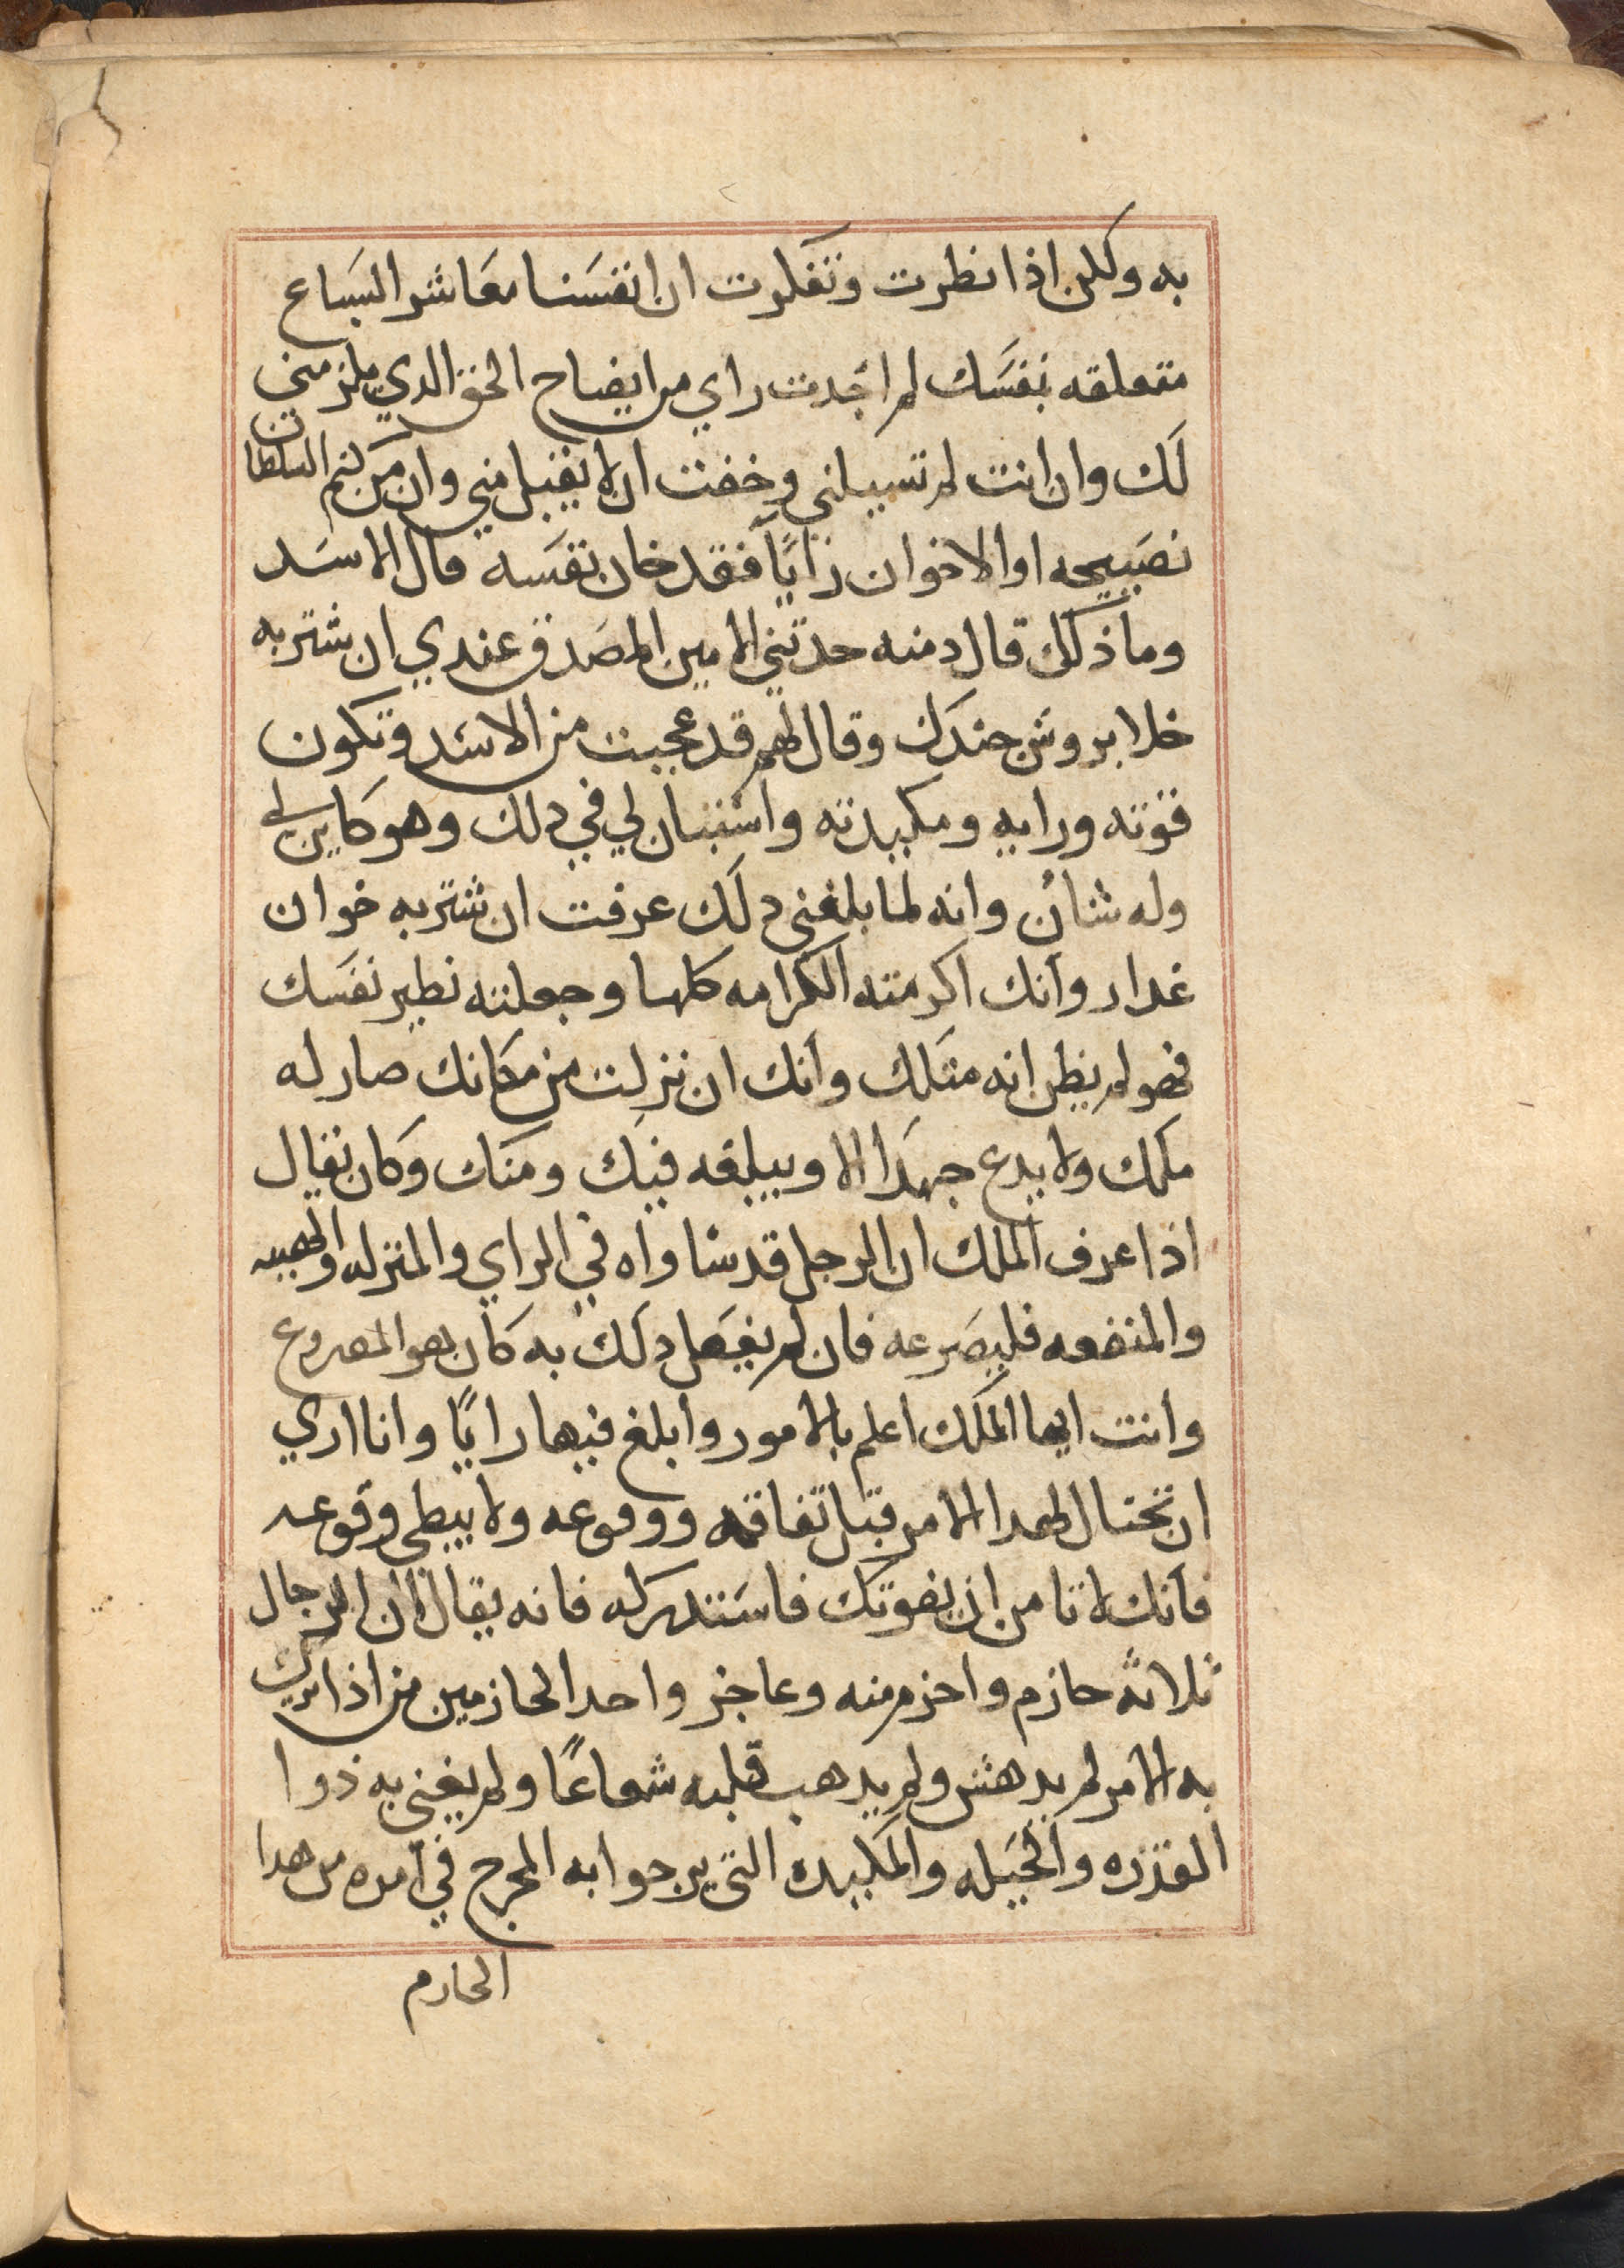 به ولكن اذا نظرت وتفكرت ان انفسنا معاشر السباع
متعلقه بنفسك لم اجد من راي من ايضاح الحق الدي يلزمني
لك وان انت لم تسيلني وخفت ان لا يقبل مني وان من كتم السلطان
نصيحه او الاخوان رايًا فقد خان نفسه قال الاسد
وما ذلك قال دمنه حدتني الامين المصدق عندي ان شتربه
خلا بروش جندك وقال لهم قد عجبت من الاسد وتكون
قوته ورايه ومكيدته واستبان لي في دلك وهو كاين لي
وله شان وانه لما بلغني دلك عرفت ان شتربه خوان
غدار وانك اكرمته الكرامه كلها وجعلته نطير نفسك
فهو لم يظن انه متلك وانك ان نزلت من مكانك صار له
ملكك ولا يدع جهدا الا ويبلغه فيك ومنك وكان يقال
اذا عرف الملك ان الرجل قد ساواه في الراي والمنزله والهيبه
والمنفعه فليصرعه فان لم يفعل دلك به كان هو المصروع
وانت ايها الملك اعلم بالامور وابلغ فيها رايًا وانا اري
ان تحتال لهدا الامر قبل تفاقمه ووقوعه ولا يبطي وقوعه
فانك لا تامن ان يفوتك فاستدركه فانه يقال ان الرجال
ثلاثة حازم واحزم منه وعاجز واحد الحازمين من اذا نزل
به الامر لم يدهش ولم يدهب قلبه شعاعًا ولم يغني به ذوا
القدره والحيله والمكيده التي يرجوا به المخرج في امره من هدا
الحازم